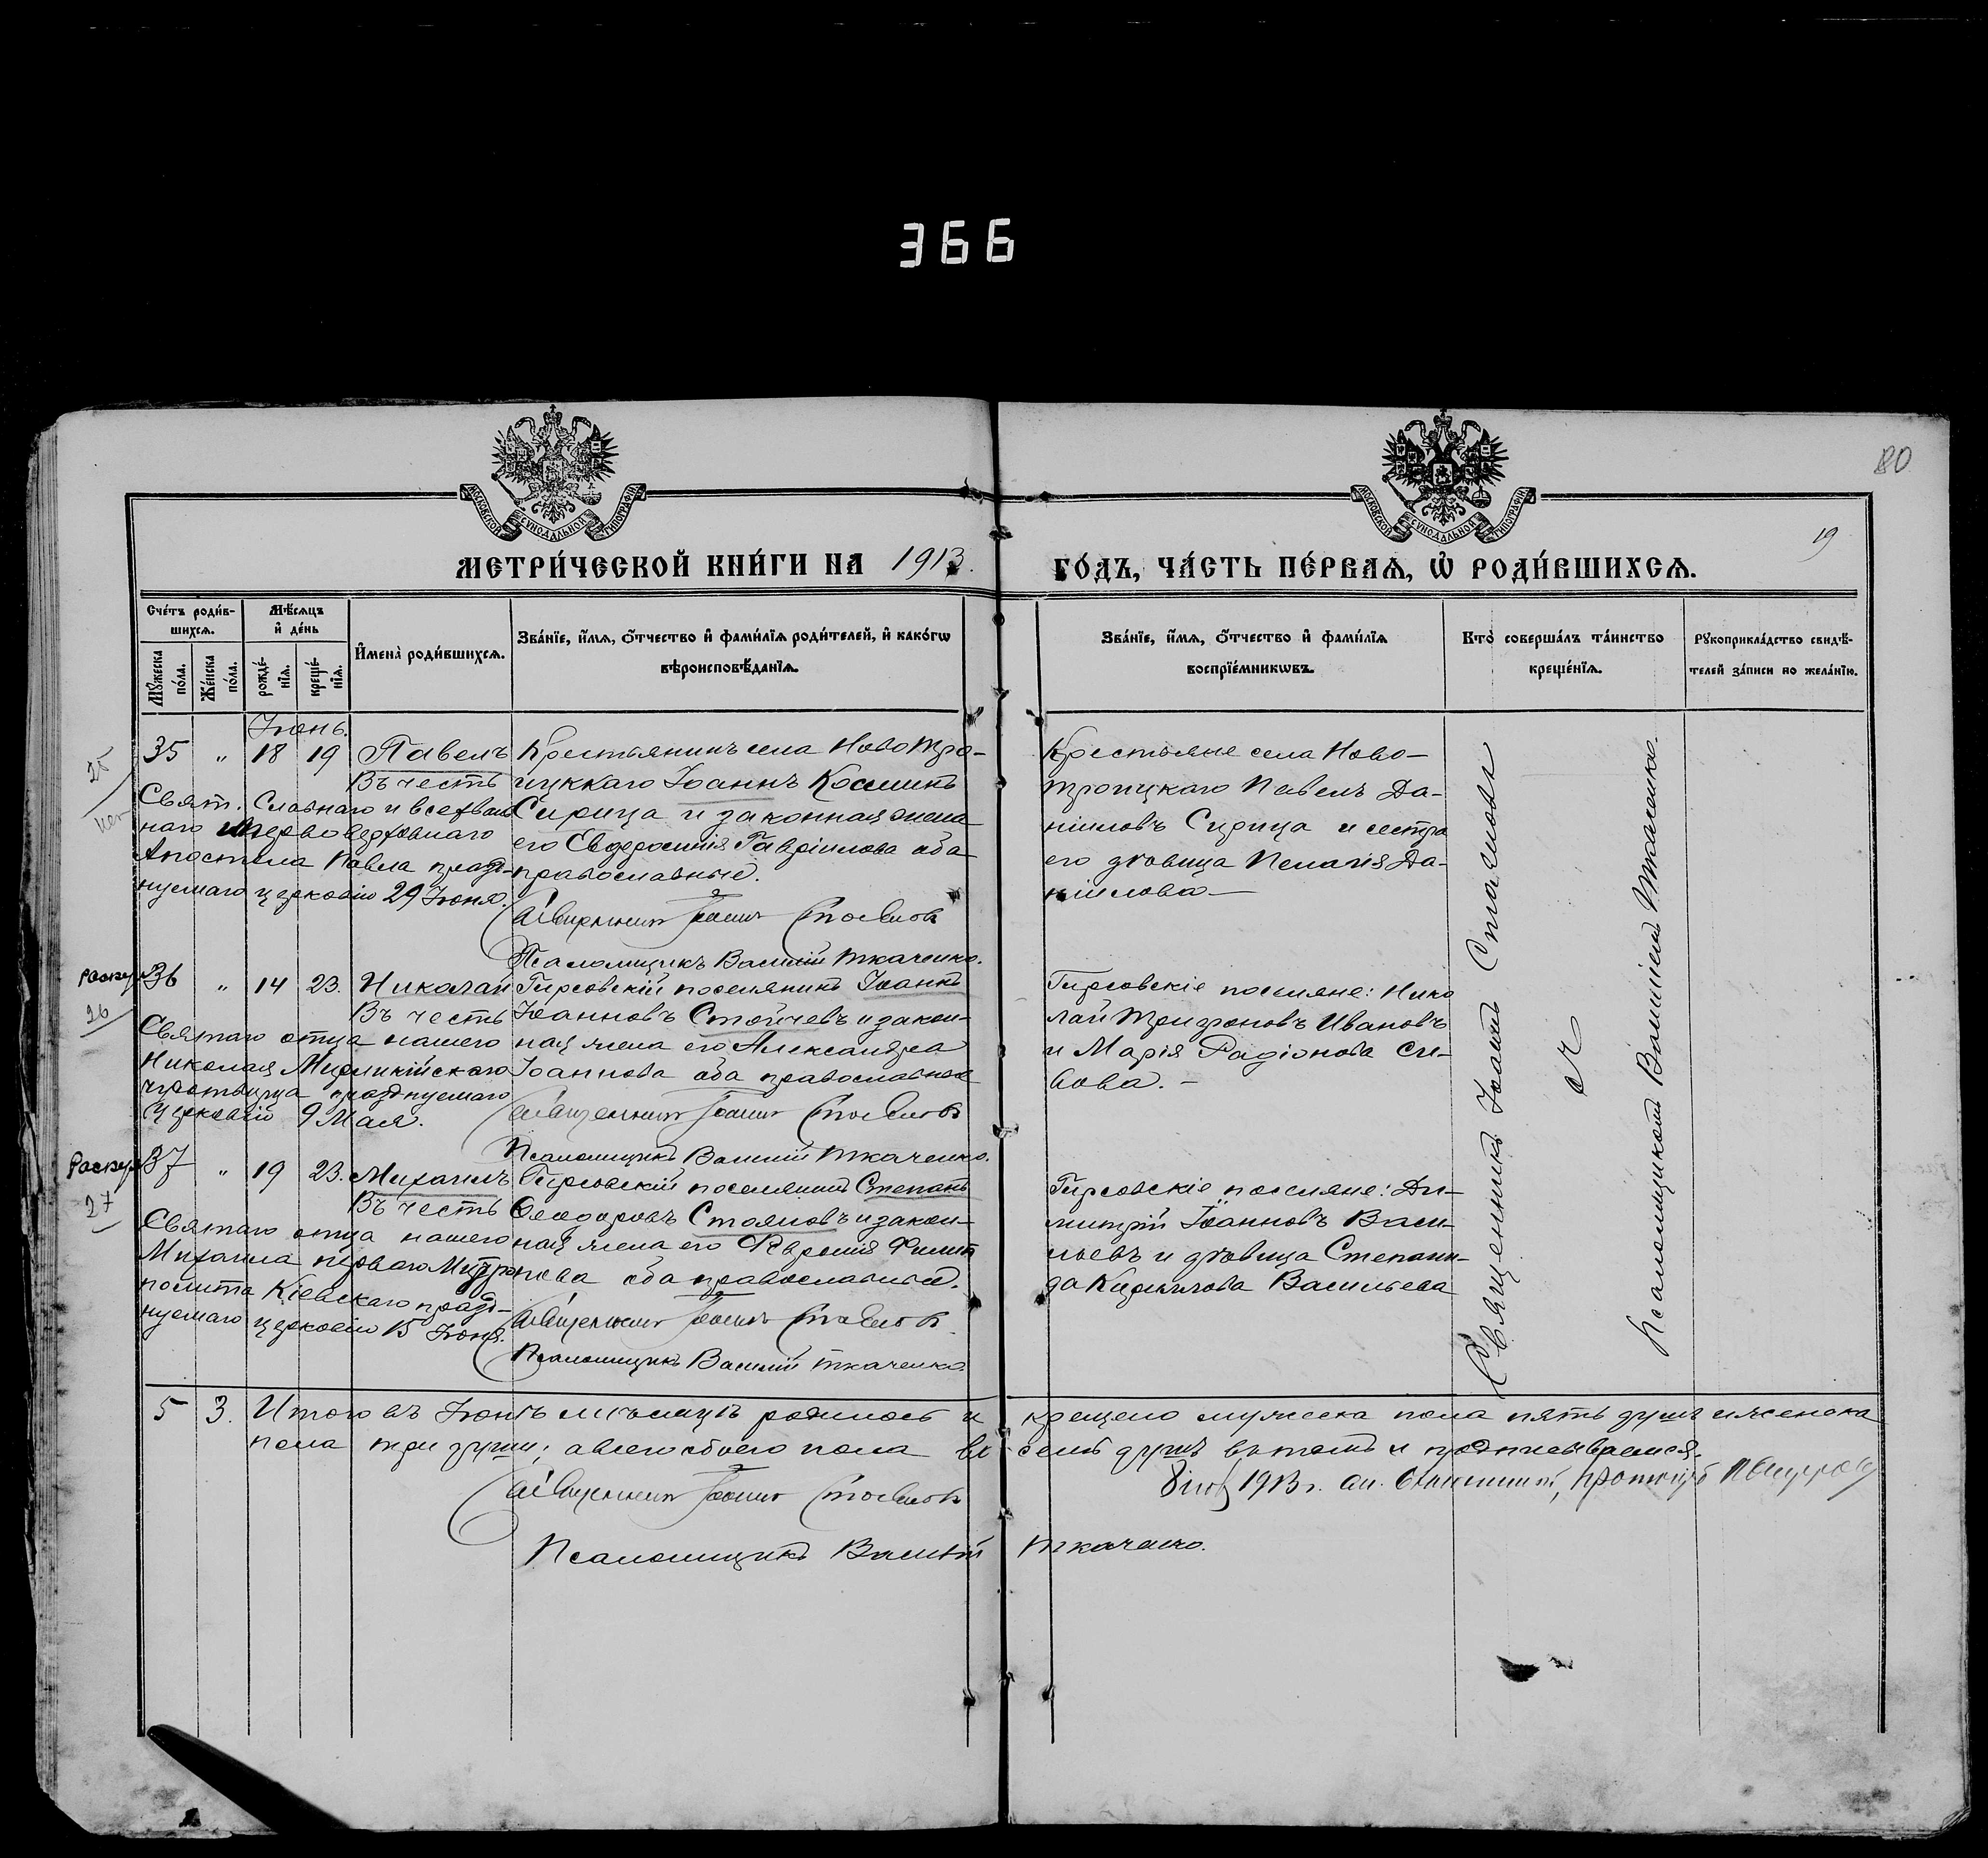 366
80
19
МОСКОВСКОЙ СУНОДАЛЬНОЙ ТИПОГРАФІИ
МОСКОВСКОЙ СУНОДАЛЬНОЙ ТИПОГРАФІИ
МЕТРИ́ЧЕСКОЙ КНИ́ГИ НА 1913. ГО́ДЪ, ЧА́СТЬ ПЕ́РВАѦ, Ѡ҆ РОДИ́ВШИХСѦ.
Сче́тъ роди́в-
шихсѧ.
Мѣ́сѧцъ
и҆ де́нь
Мꙋ́жеска
по́ла.
Же́нска
по́ла.
рожде́-
нїѧ.
креще́-
нїѧ.
И҆мена̀ роди́вшихсѧ.
Зва́нїе, и҆́мѧ, ѻ҆́тчество и҆ фами́лїѧ роди́телей, и҆ како́гѡ
вѣроисповѣ́данїѧ.
Зва́нїе, и҆́мѧ, ѻ҆́тчество и҆ фами́лїѧ
воспрїе́мникѡвъ.
Кто̀ соверша́лъ та́инство
креще́нїѧ.
Рꙋкоприкла́дство свидѣ́-
телей за́писи по жела́нїю.
Іюнь.
25
35 " 18 19 Павелъ
Въ честь
Свят. Славнаго и всехваль
наго Первоверховнаго
Апостола Павла празд-
нуемаго церковію 29 Іюня.
Крестьянинъ села Ново Тро-
ицккаго Іоаннъ Косминъ
Сирица и законная жена
его Евдросинія Гавріилова оба
православные.
Священникъ Іоаннъ Стоиловъ
Псаломщикъ Василій Ткаченко.
Крестьяне села Ново-
троицкаго Павелъ Да-
ніиловъ Сирица и сестра
его дѣвица Пелагія Да-
ніилова
26
36 " 14 23. Николай
Въ честь
Святаго отца нашего
Николая Мирликійскаго
чудотворца празднуемаго
Церковію 9 Мая.
Гирсовскій поселянинъ Іоаннъ
Іоанновъ Стойчевъ и закон-
ная жена его Александра
Іоаннова оба православные
Священникъ Іоаннъ Стоиловъ
Псаломщикъ Василій Ткаченко.
Гирсовскіе поселяне: Нико
лай Трифоновъ Ивановъ
и Марія Радіонова Си-
вова. -
27
37 " 19 23. Михаилъ
Въ честь
Святаго отца нашего
Михаила перваго Митро
полита Кіевскаго празд-
нуемаго церковію 15 Іюня.
Гирсовскій поселянинъ Степанъ
Ѳеодоровъ Стояновъ и закон-
ная жена его Февронія Филип
пова оба православные.
Священникъ Іоаннъ Стоиловъ
Псаломщикъ Василій Ткаченко.
Гирсовскіе поселяне: Ди-
митрій Іоанновъ Васи-
льевъ и дѣвица Степани-
да Кириллова Васильева
Священникъ Іоаннъ Стоиловъ
съ
Псаломщикомъ Василіемъ Ткаченко.
5 3. Итого въ Іюнѣ мѣсяцѣ родилось и крещено мужеска пола пять душъ и женска
пола три души; а всего обоего пола во- семь душъ въ томъ и подписываемся.
Священникъ Іоаннъ Стоиловъ
1913 г.
Псаломщикъ Василій Ткаченко.